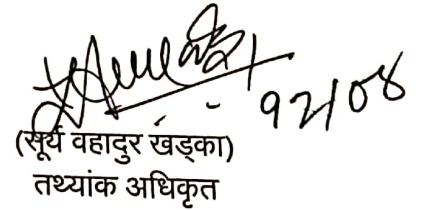 १२/०४
(सूर्य वहादुर खड्का)
तथ्यांक अधिकृत